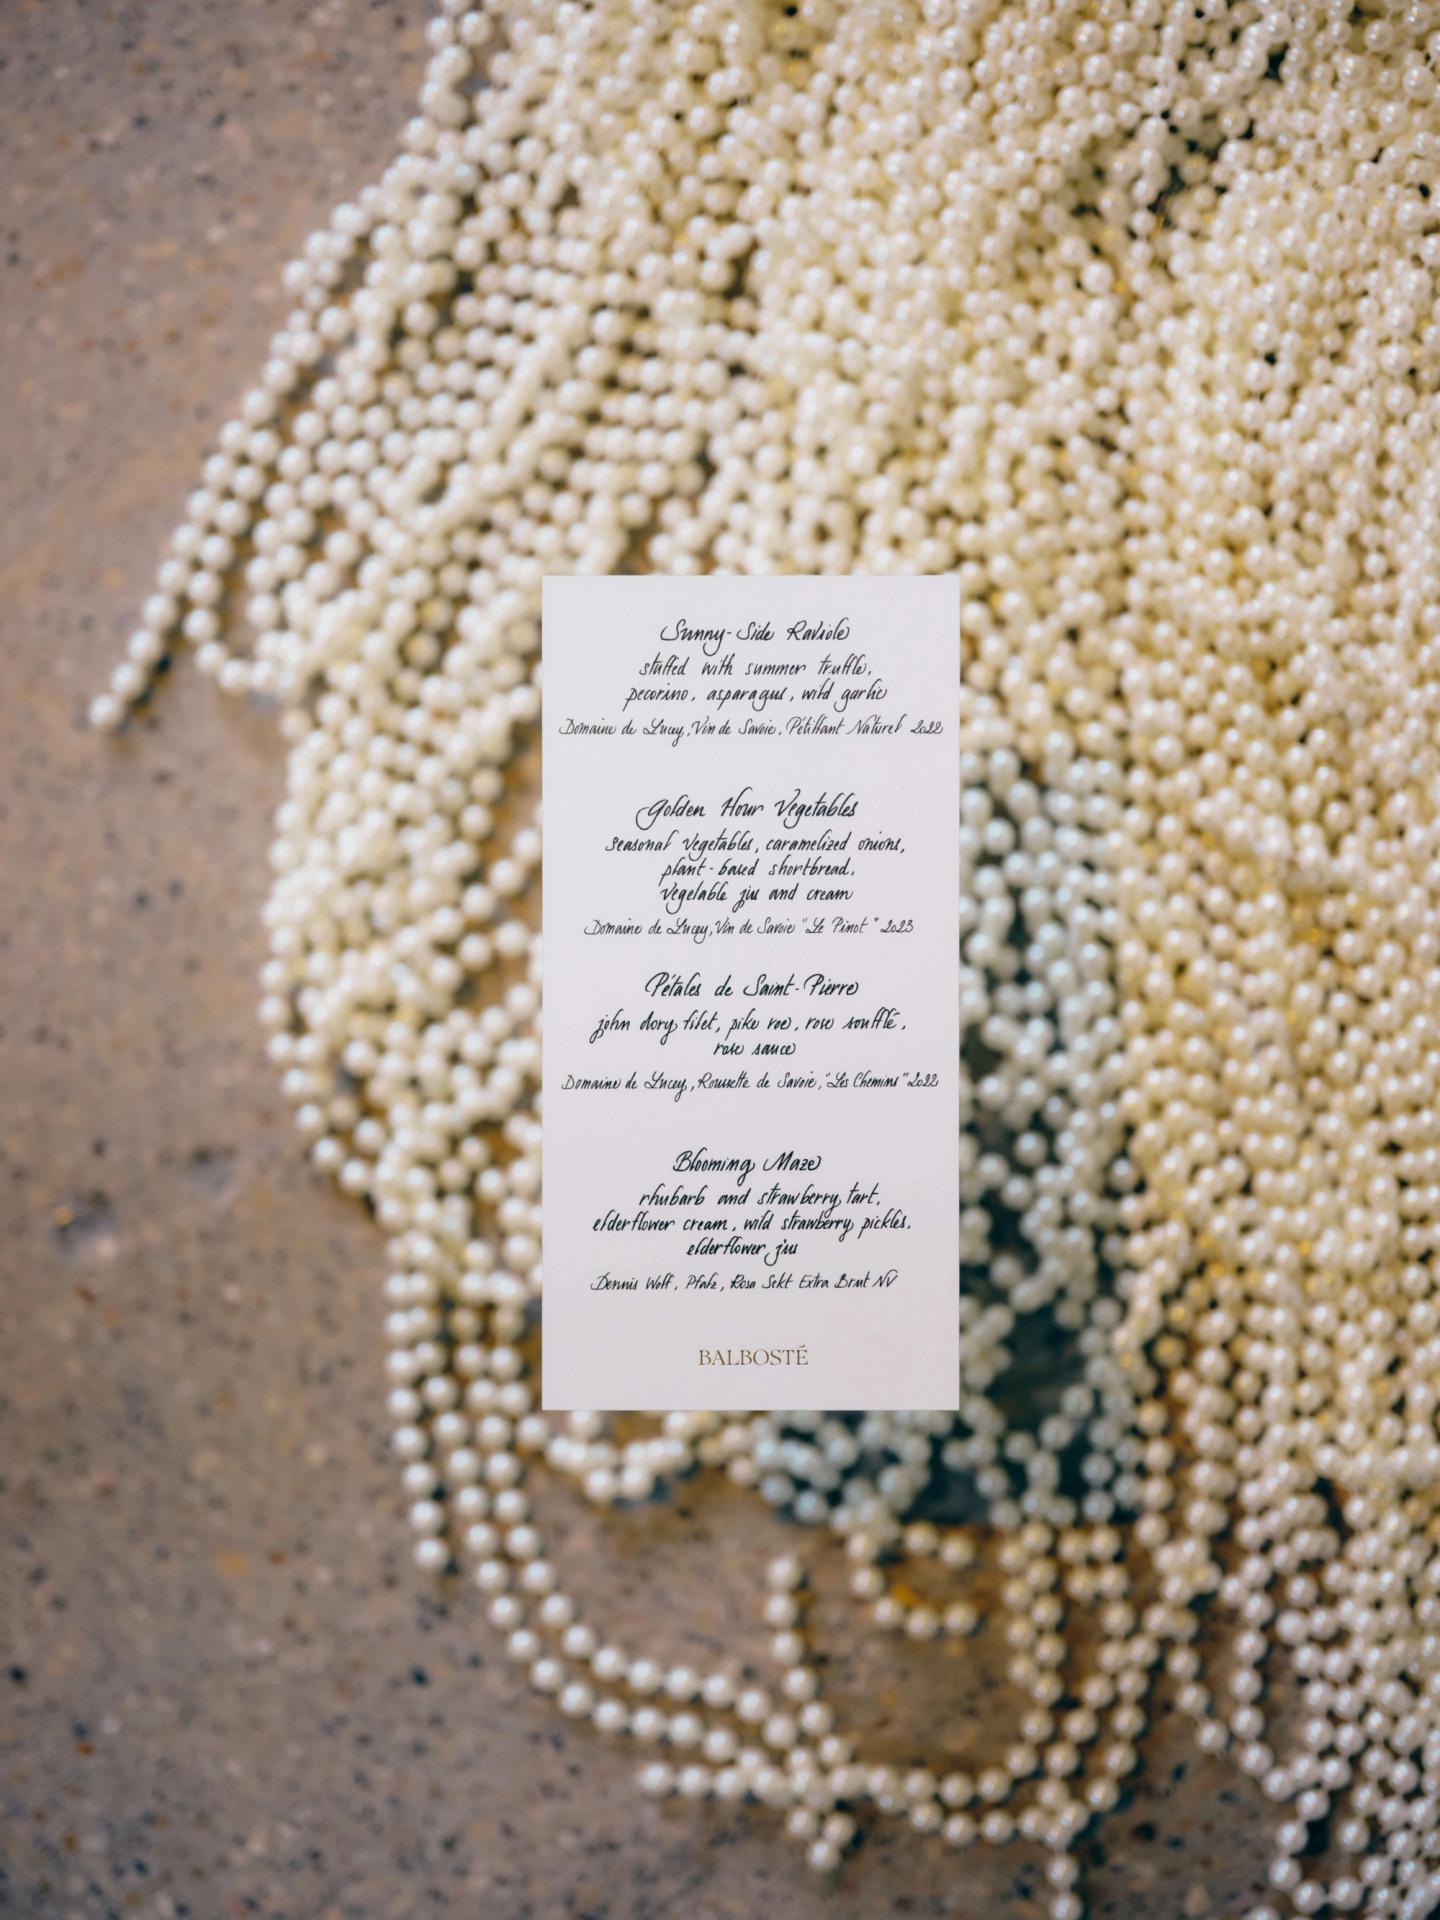 Sunny-Side Raviole
stuffed with summer truffle,
pecorino, asparagus, wild garlic
Domaine de Lucey, Vin de Savoie, Pétillant Naturel 2022
Golden Hour Vegetables
seasonal vegetables, caramelized onions,
plant-based shortbread,
vegetable jus and cream
Domaine de Lucey, Vin de Savoie "Le Pinot" 2023
Pétales de Saint-Pierre
john dory filet, pike roe, rose soufflé,
rose sauce
Domaine de Lucey, Roussette de Savoie, "Les Chemins" 2022
Blooming Maze
rhubarb and strawberry tart,
elderflower cream, wild strawberry pickles,
elderflower jus
Dennis Wolf, Pfalz, Rosa Sekt Extra Brut NV
BALBOSTÉ